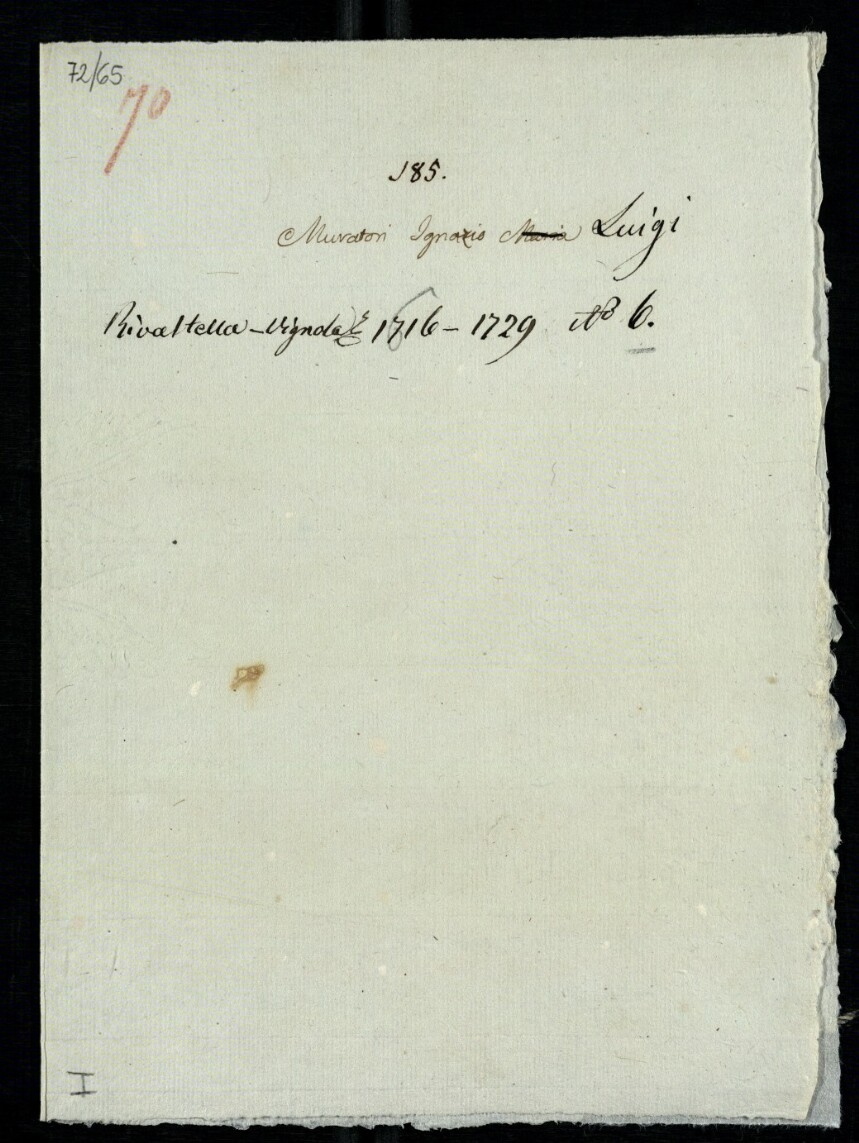 72/65
70
185.
Muratori Ignazio Maria Luigi
Rivaltella - Vignola 1716 - 1729 No 6.
I